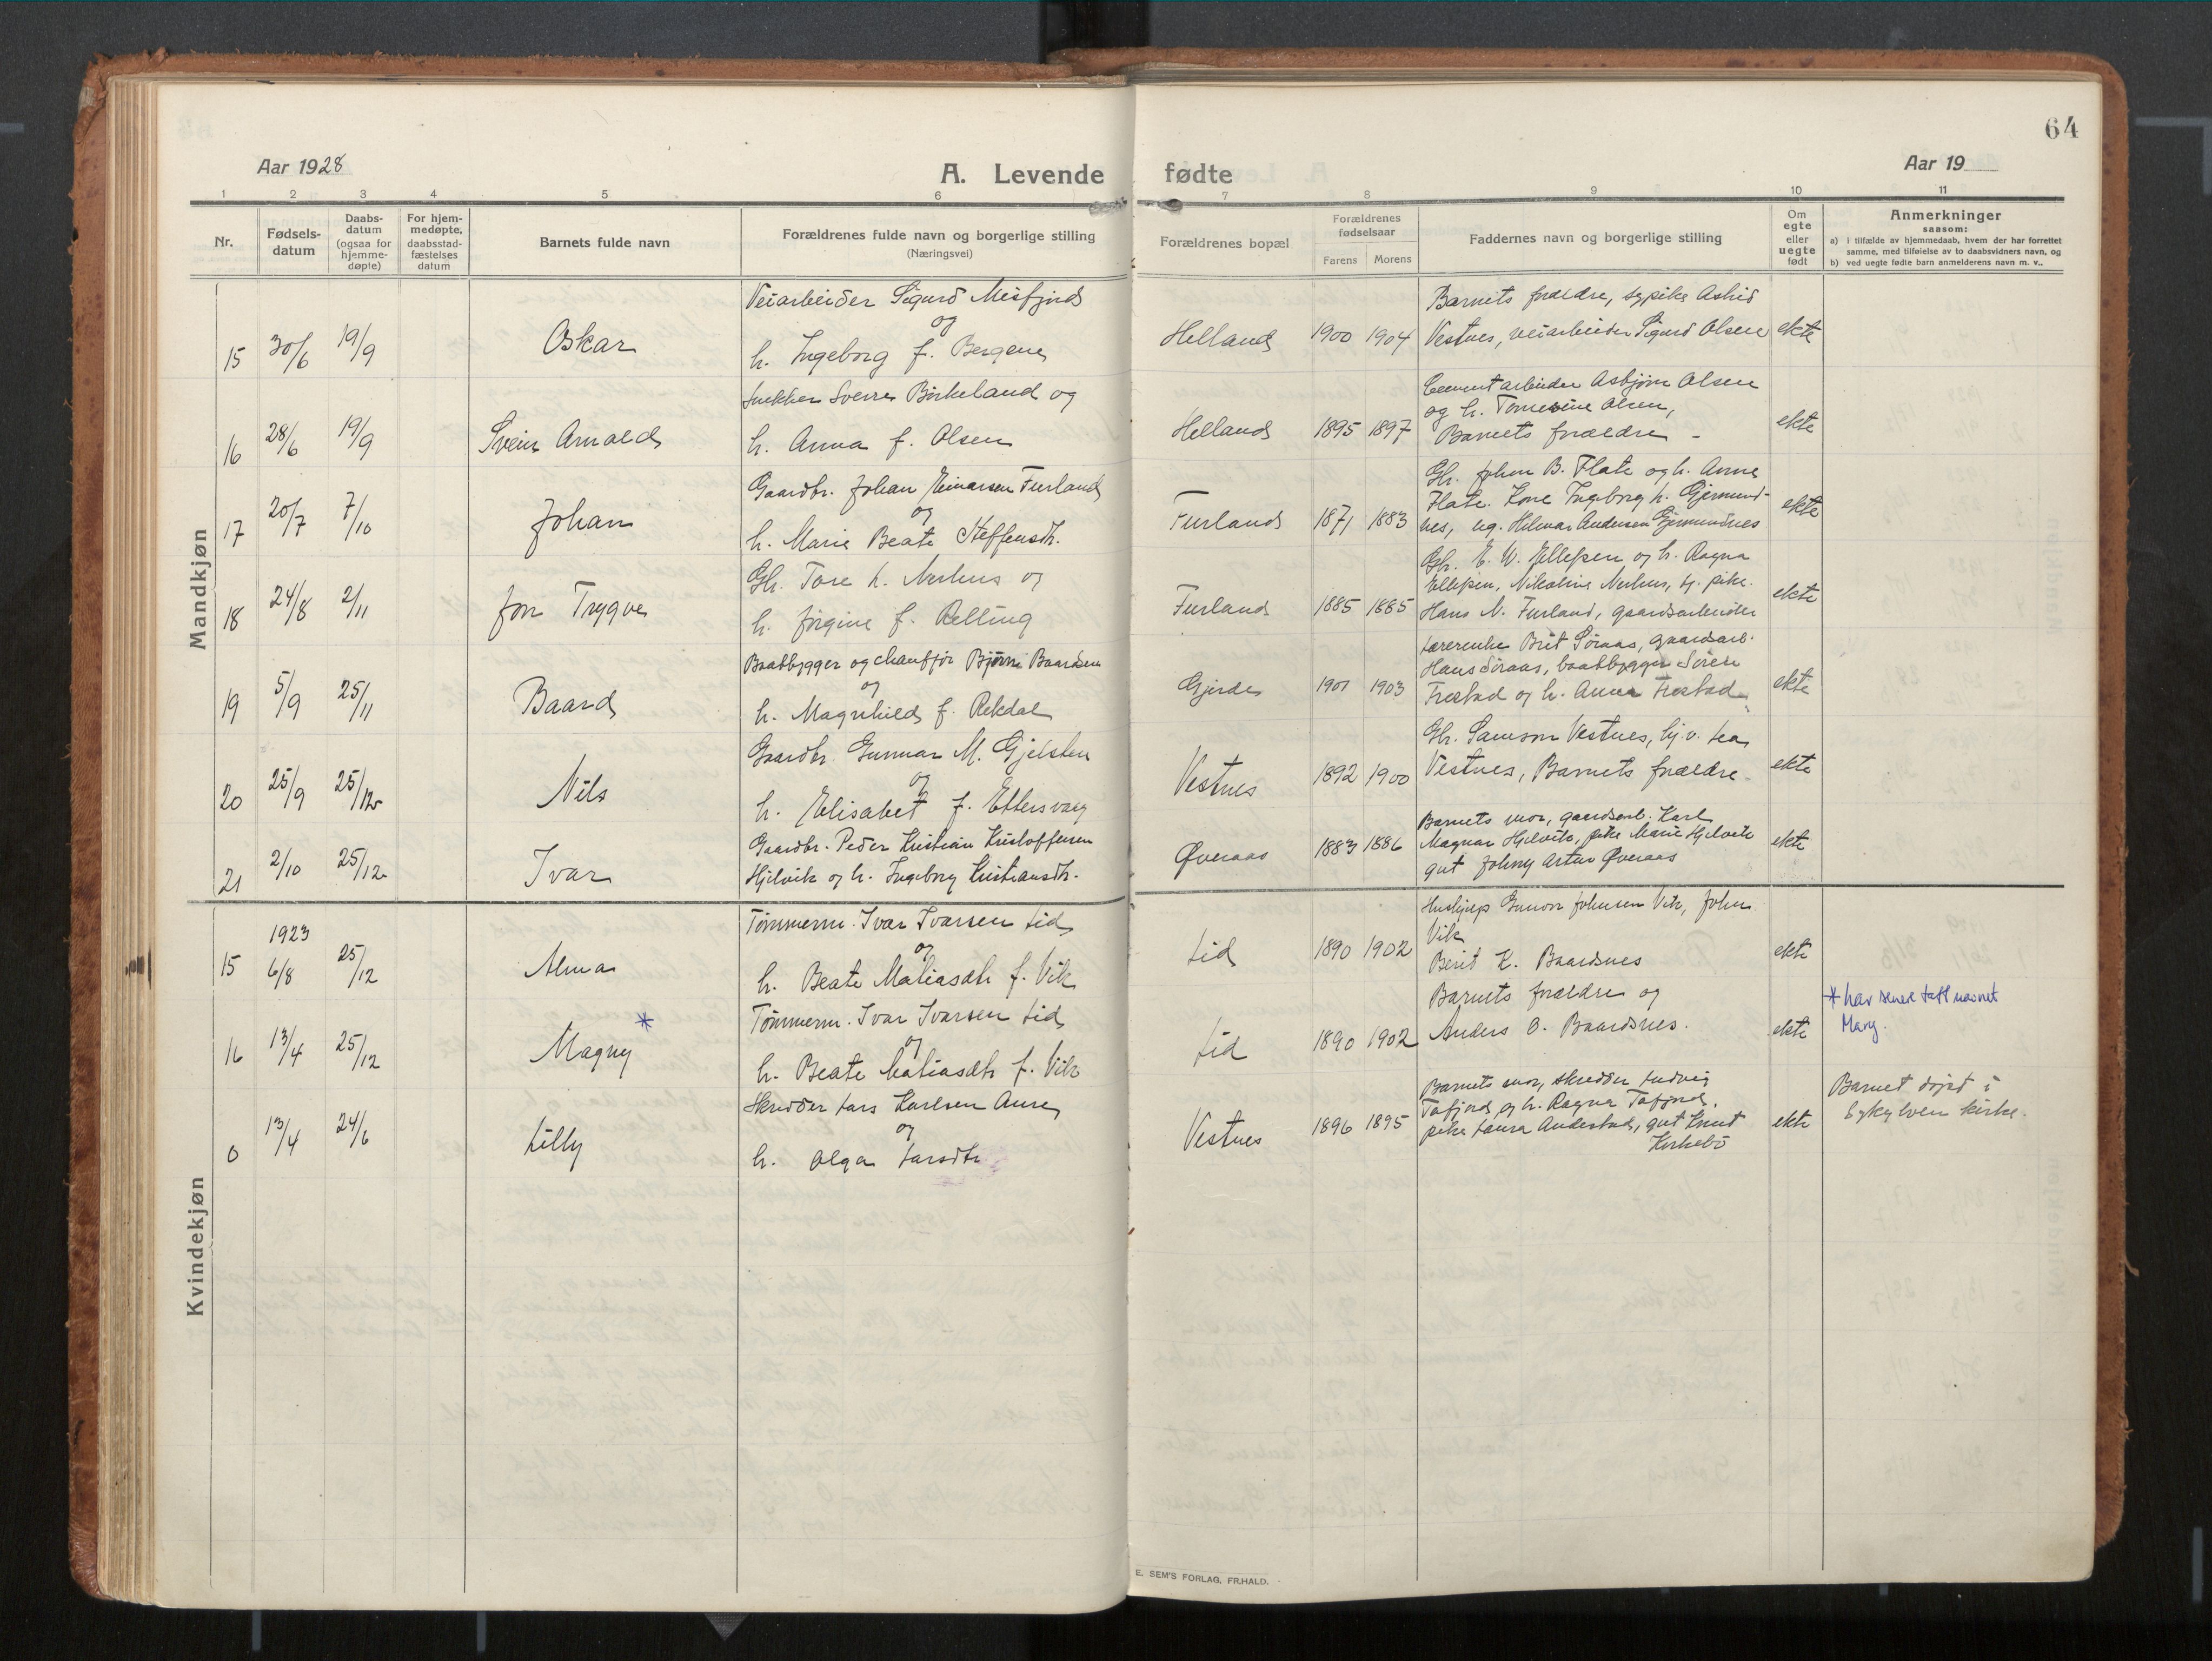 64
Aar 1928
A. Levende fødte
Aar 19
1 2 3 4 5 6 7 8 9 10 11
Nr.
Fødsels-
datum
Daabs-
datum
(ogsaa for
hjemme-
døpte)
For hjem-
medøpte,
daabsstad-
fæstelses
datum
Barnets fulde navn
Forældrenes fulde navn og borgerlige stilling
(Næringsvei)
Forældrenes bopæl
Forældrenes
fødselsaar
Farens Morens
Faddernes navn og borgerlige stilling
Om
egte
eller
uegte
født
Anmerkninger
saasom:
a) i tilfælde av hjemmedaab, hvem der har forrettet
samme, med tilføielse av to daabsvidners navn, og
b) ved uegte fødte barn anmelderens navn m. v..
Mandkjøn
15 30/6 19/9 Oskar
Veiarbeider Sigurd Misfjord
og
h. Ingeborg f. Bergene
Helland 1900 1904
Barnets forældre, sypike Astrid
Vestnes, veiarbeider Sigurd Olsen
ekte
16 28/6 19/9 Svein Arnald
Snekker Sverre Birkeland og
h. Anna f. Olsen
Helland 1895 1897
Cementarbeider Asbjørn Olsen
og h. Tomesine Olsen,
Barnets forældre -
ekte
17 20/7 7/10 Johan
Gaardbr. Johan Einarsen Furland
og
h. Marie Beate Steffensdtr.
Furland 1871 1883
Gbr. Johan B. Flate og h. Anne
Flate. Kone Ingeborg h. Gjermund-
nes, ug. Hilmar Andersen Gjermundnes
ekte
18 24/8 2/11 Jon Trygve
Gbr. Tore h. Nerhus og
h. Jørgine f. Relling
Furland 1885 1885
Gbr. E. W. Ellefsen og h. Ragna
Ellefsen, Nikoline Nerhus, tj. pike.
Hans N. Furland, gaardsarbeider
ekte
19 5/9 25/11 Baard
Baatbygger og chauffør Bjørn Baardsen
og
h. Magnhild f. Rekdal
Gjerde 1901 1903
Lærerenke Brit Søraas, gaardsarb.
Hans Søraas, baatbygger Søren
Trestad og h. Anna Trestad
ekte
20 25/9 25/12 Nils
Gaardbr. Gunnar M. Gjelsten
og
h. Elisabet f. Ettersvaag
Vestnes 1892 1900
Gbr. Samson Vestnes, hj.v. Lea
Vestnes, Barnets forældre
ekte
21 2/10 25/12 Ivar
Gaardbr. Peder Kristian Kristoffersen
Hjelvik og h. Ingeborg Kristiansdtr.
Øveraas 1883 1886
Barnets mor, gaardsarb. Karl
Magnar Hjelvik, pike Marie Hjelvik
gut Johny Artur Øveraas
ekte
Kvindekjøn
15 1923 6/8 25/12 Alma
Tømmerm. Ivar Ivarsen Lid
og
h. Beate Matiasdtr f. Vik
Lid 1890 1902
Hushjelp Gunvor Johnsen Vik, John
Vik
Berit K. Baardsnes
ekte
16 13/4 25/12 Magny *
Tømmerm. Ivar Ivarsen Lid
og
h. Beate Matiasdtr f. Vik
Lid 1890 1902
Barnets forældre og
Anders O. Baardsnes.
ekte
* har senere tatt navnet
Mary.
0 13/4 24/6 Lilly
Skredder Lars Karlsen Aure
og
h. Olga Larsdtr
Vestnes 1896 1895
Barnets mor, skredder Ludvig
Tafjord og h. Ragna Tafjord.
pike Laura Andestad, gut Knut
Kirkebø
ekte
Barnet døpt i
Sykylven kirke.
E. SEM'S FORLAG, FR.HALD.